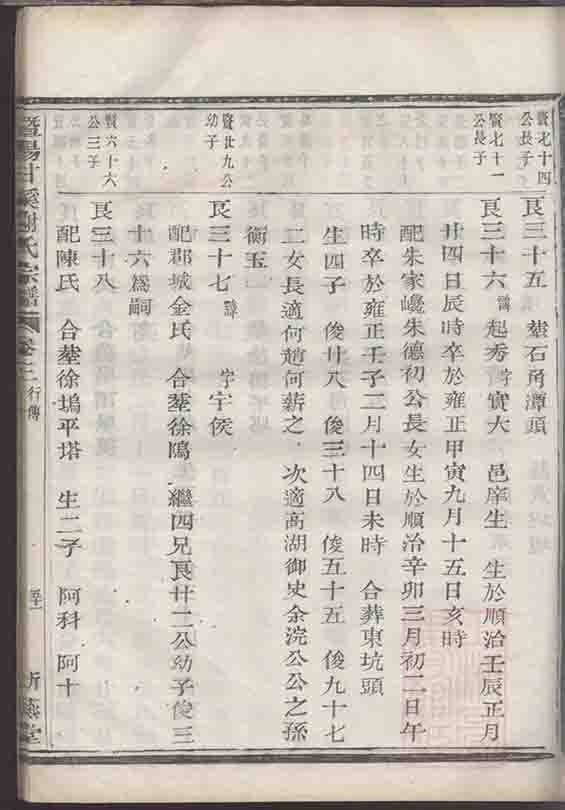 賢七十四公長子
良三十五 塟石角潭頭
賢七十一公長子
良三十六 諱起秀字實夫 邑庠生 生於順治壬辰正月
廿四日辰時卒於雍正甲寅九月十五日亥時
配朱家㠢朱德初公長女生於順治辛卯三月初二日午
時卒於雍正壬子二月十四日未時 合葬東坑頭
生四子 俊廿八 俊三十八 俊五十五 俊九十七
二女長適何趙何薪之 次適高湖御史余浣公公之孫
衡玉
賢廿九公幼子
良三十七 諱 字宇侯
配郡城金氏 合塟徐塢 繼四兄良廿二公幼子俊三
十六爲嗣
賢六十六公三子
良三十八
配陳氏 合塟徐塢平塔 生二子 阿科 阿十
暨陽甘溪謝氏宗譜 卷之二 行傳